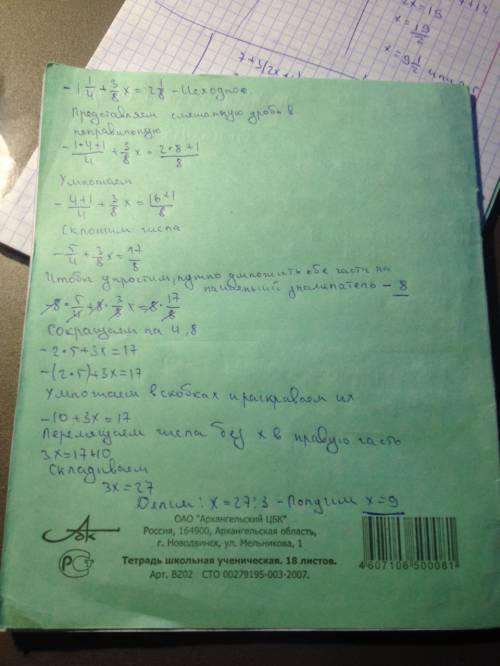 2x=19
x=19/2
x=9 1/2
7+3(2x+
-1 1/4 + 3/8 x = 2 1/8 - Исходное.
Представляем смешанную дробь в
неправильную
- 1•4+1/4 + 3/8 x = 2•8+1/8
Умножаем
- 4+1/4 + 3/8 x = 16+1/8
Сложим числа
- 5/4 + 3/8 x = 17/8
Чтобы упростим, нужно умножить обе части на
наименьший знаменатель - 8
-8 • 5/4 + 8 • 3/8 x = 8 • 17/8
Сокращаем на 4,8
-2•5+3x=17
-(2•5)+3x=17
Умножаем в скобках и раскрываем их
-10+3x=17
Перемещаем числа без x в правую часть
3x=17+10
Складываем
3x=27
Делим: x=27:3 - Получим x=9
ОАО "Архангельский ЦБК"
Россия, 164900, Архангельская область,
г. Новодвинск, ул. Мельникова, 1
Тетрадь школьная ученическая. 18 листов.
Арт. BZ02 СТО 00279195-003-2007.
АбК
РС
4 607106 500081